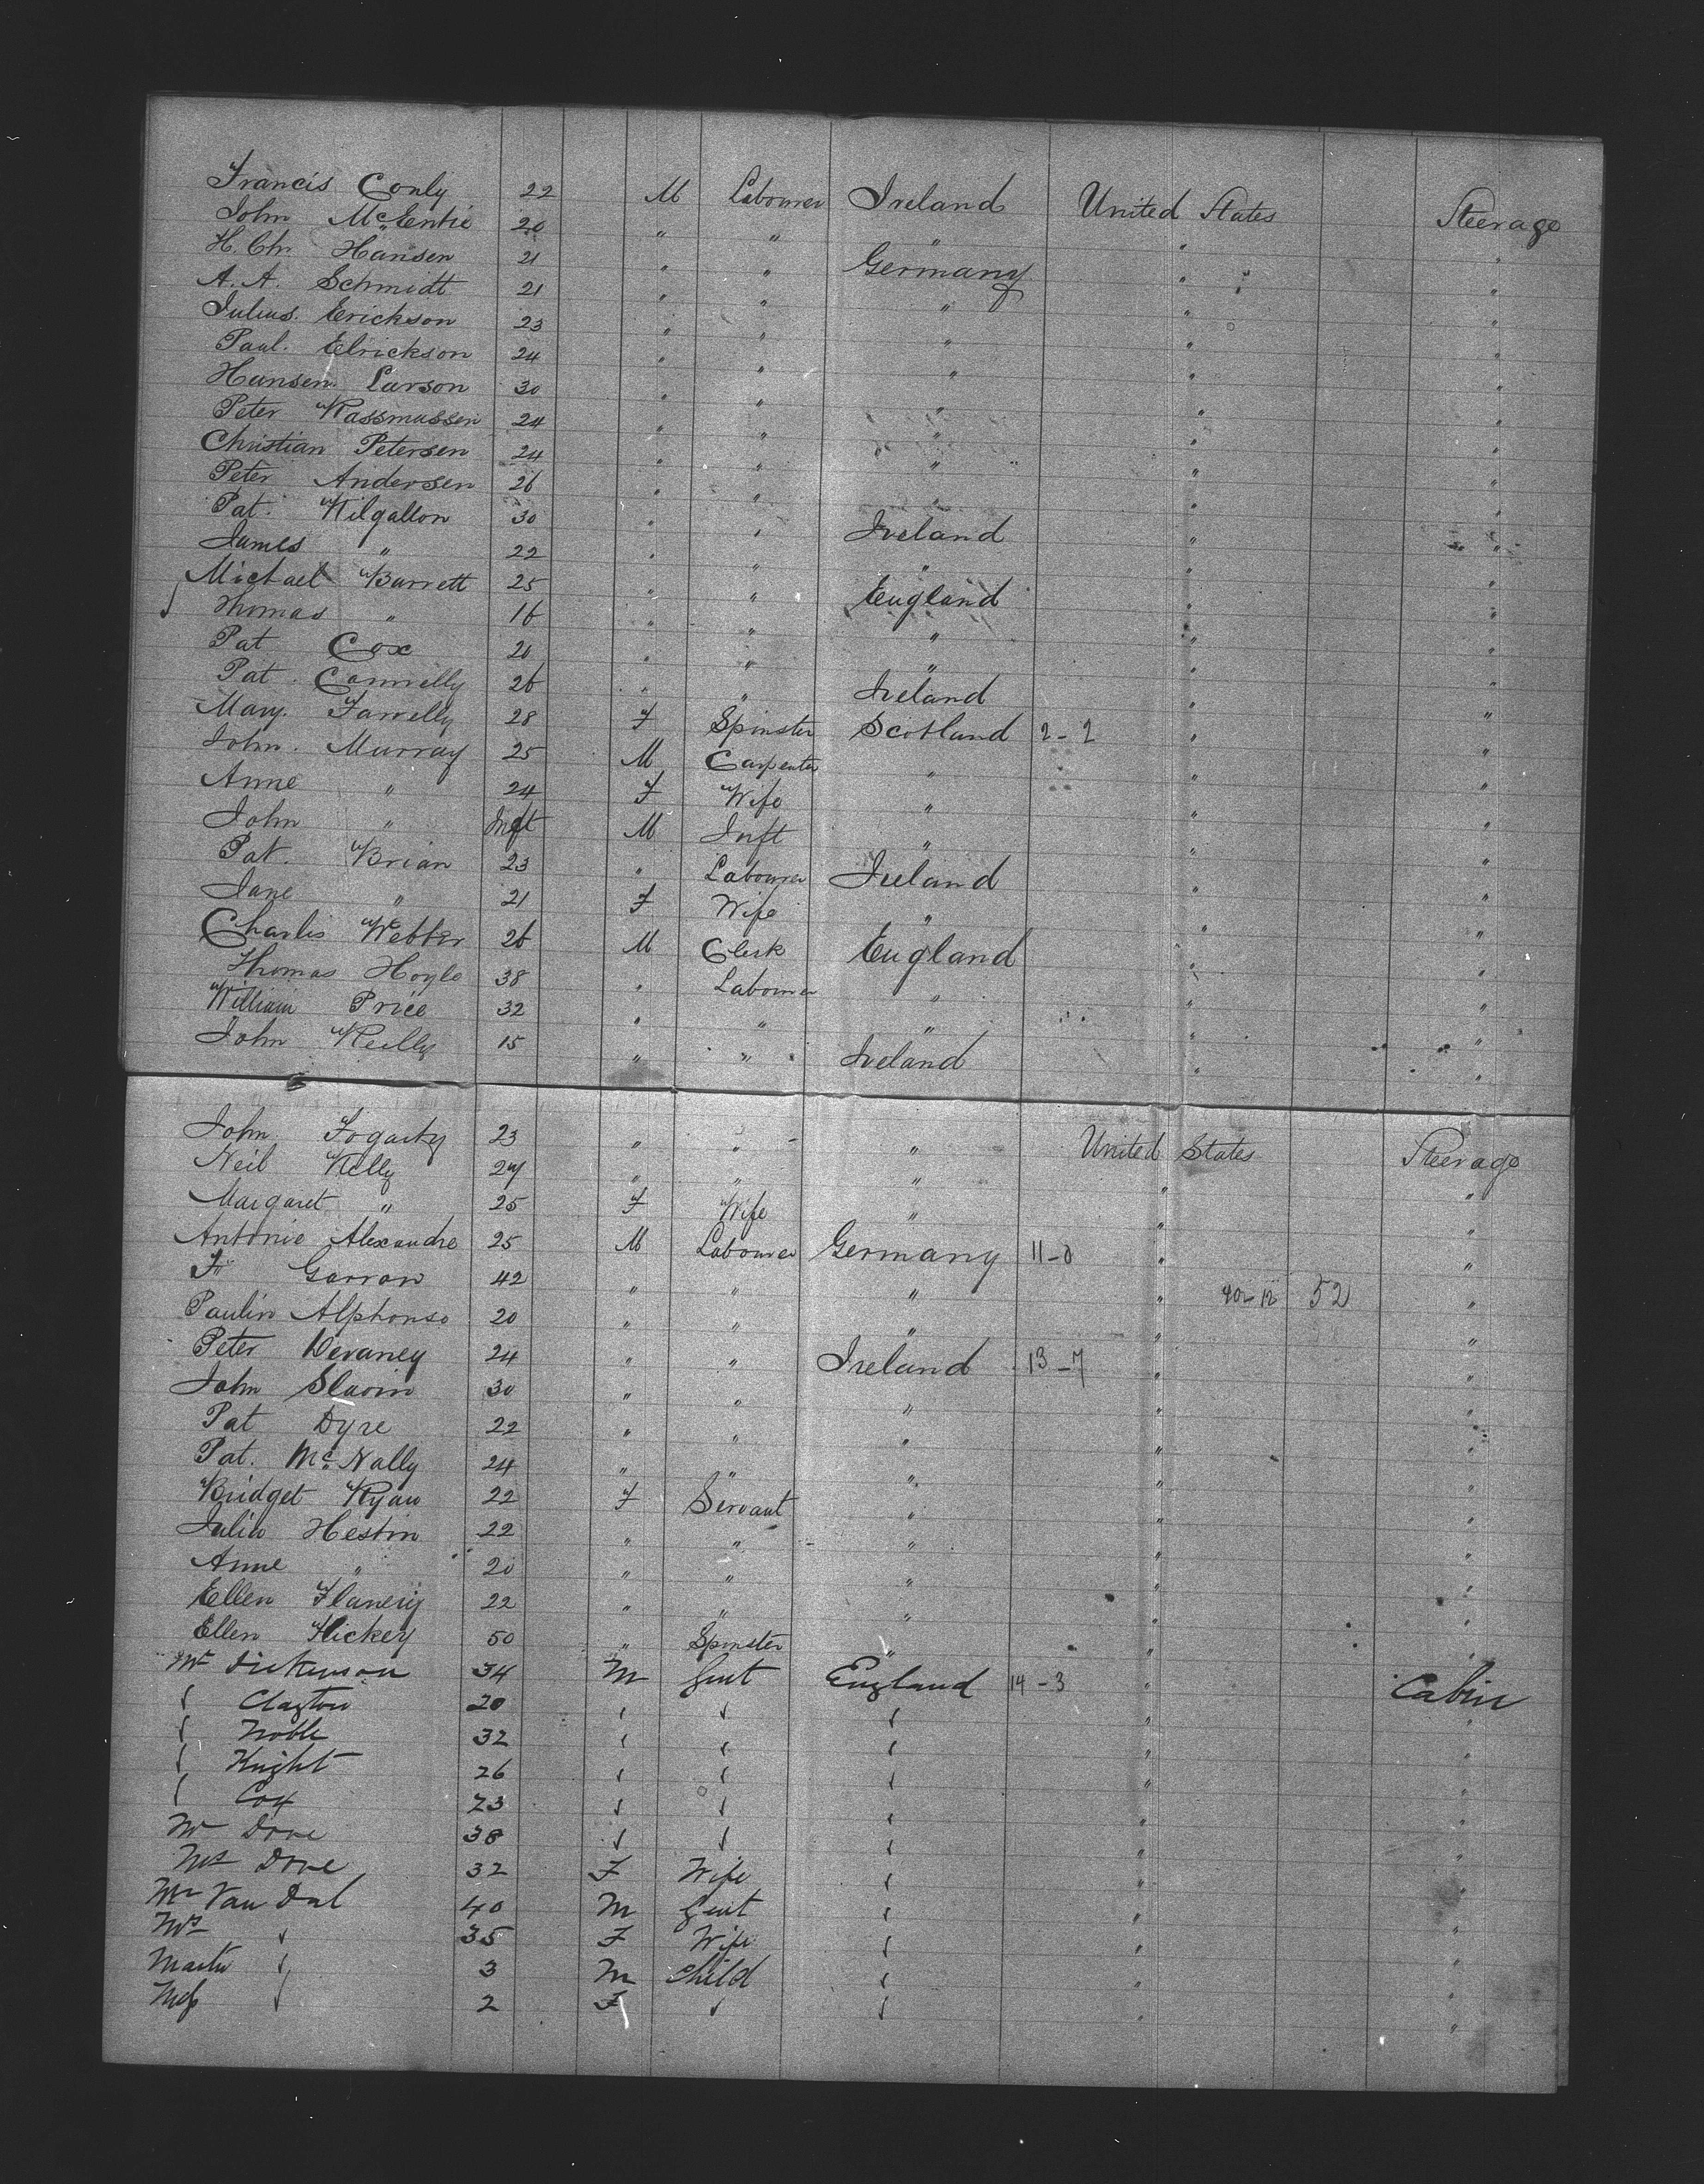 Francis Conly 22 M Labourer Ireland United States Steerage
John McEntie 20 " " " " "
H. Chr. Hansen 21 " " Germany " "
A. A. Schmidt 21 " " " " "
Julius. Erickson 23 " " " " "
Paul. Elrickson 24 " " " " "
Hansen. Larson 30 " " " " "
Peter Rassmussen 24 " " " " "
Christian Petersen 24 " " " " "
Peter Andersen 26 " " " " "
Pat. Kilgallon 30 " " Ireland " "
James " 22 " " " " "
Michael Barrett 25 " " England " "
Thomas " 16 " " " " "
Pat Cox 20 " " " " "
Pat. Connelly 26 " " Ireland " "
Mary. Farrelly 28 F Spinster Scotland 2-2 " "
John. Murray 25 M Carpenter " " "
Anne " 24 F Wife " " "
John " Inft M Inft " " "
Pat. Brian 23 " Labourer Ireland " "
Jane " 21 F Wife " " "
Charlis Webber 26 M Clerk England " "
Thomas Hoyle 38 " Labourer " " "
William Price 32 " " " " "
John Reilly 15 " " Ireland " "
John Fogarty 23 " " " United States Steerage
Neil Kelly 27 " " " " "
Margaret " 25 F Wife " " "
Antonie Alexandre 25 M Labourer Germany 11-0 " "
F. Garron 42 " " " " 52 "
Paulin Alphonso 20 " " " " "
Peter Devaney 24 " " Ireland 13-7 " "
John Slavin 30 " " " " "
Pat Dyre 22 " " " " "
Pat. McNally 24 " " " " "
Bridget Ryan 22 F Servant " " "
Julia Hestin 22 " " " " "
Anne " 20 " " " " "
Ellen Flanery 22 " " " " "
Ellen Hickey 50 " Spinster " " "
Mr Dickinson 34 M Gent England 14-3 " Cabin
" Clayton 20 " " " " "
" Noble 32 " " " " "
" Knight 26 " " " " "
" Cox 23 " " " " "
Mr Dove 38 " " " " "
Mrs Dove 32 F Wife " " "
Mr Van Dal 40 M Gent " " "
Mrs " 35 F Wife " " "
Master " 3 M Child " " "
Miss " 2 F " " " "